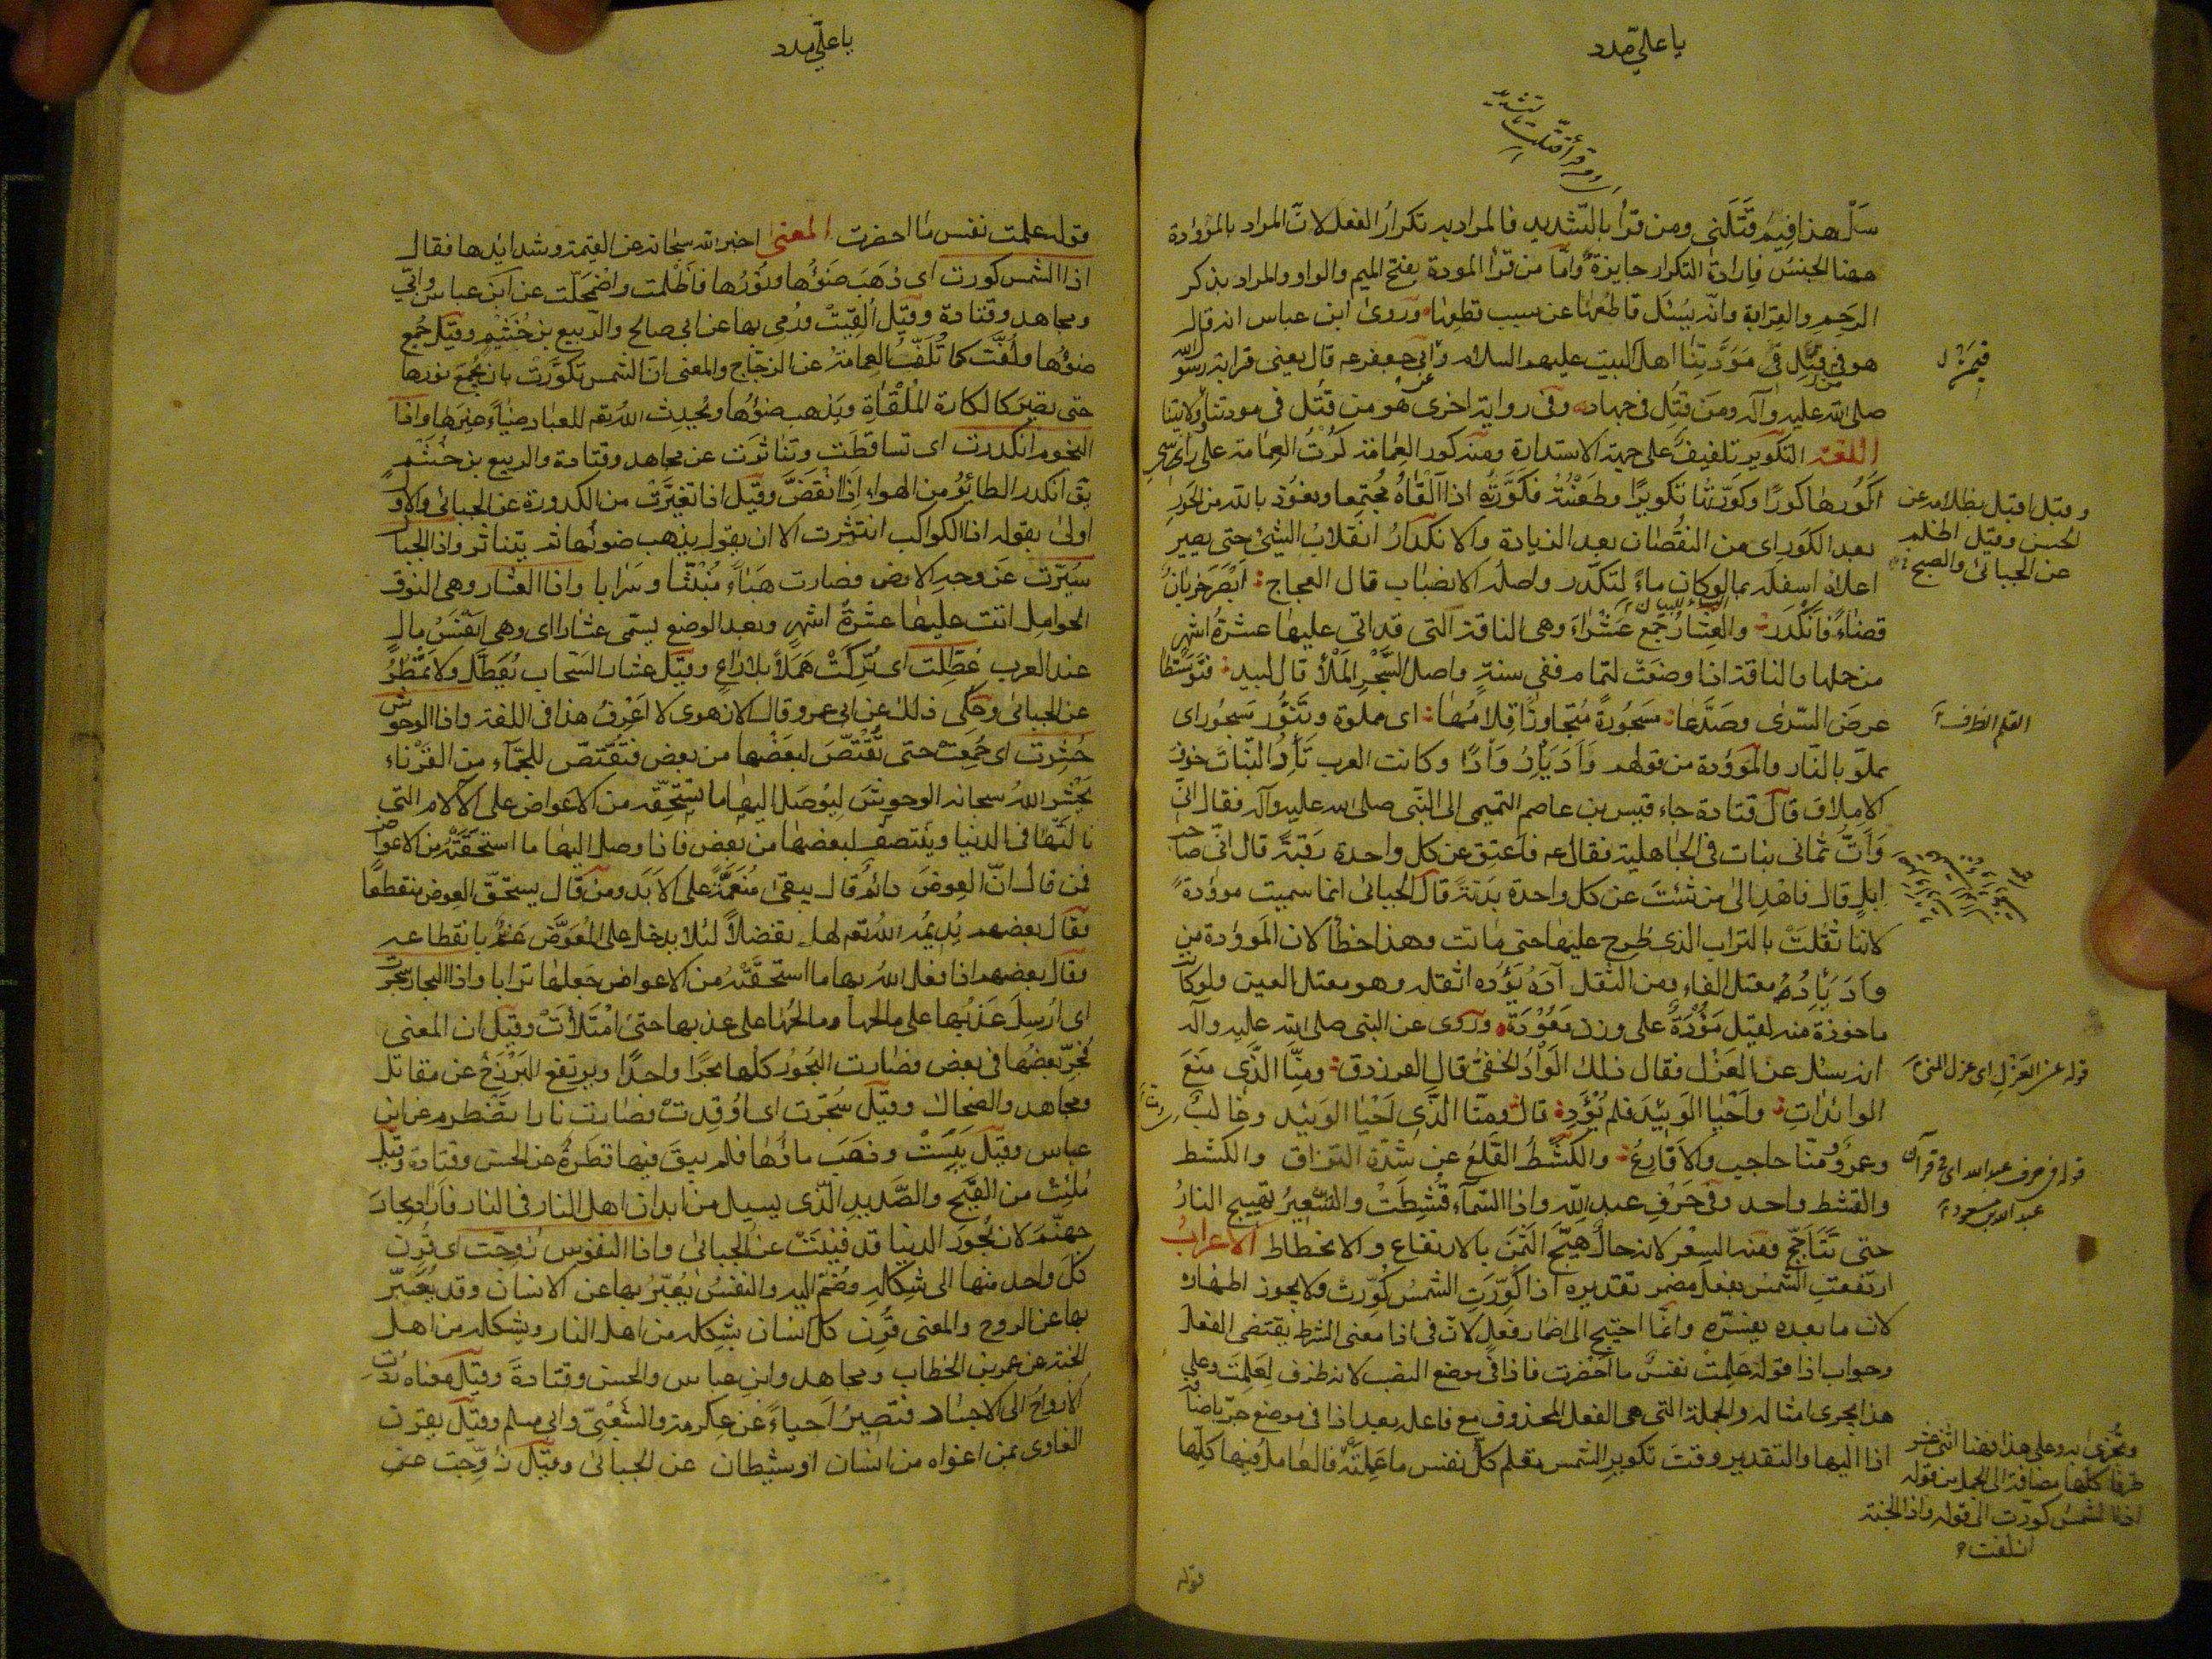 يا علي مدد
سَلْ هذا فِيمَ قَتَلَني ومن قرأ بالتّشديد فالمراد به تكرارُ الفعل لانّ المراد بالموْؤدة
ههنا الجنسُ فارادة التكرار جايزة وامّا من قرأ المودة بفتح الميم والواو والمراد بذكر
الرحِم والقرابة وانّه يُسْئل قاطعُها عن سبب قطعها وروى ابن عباس انه قال
هو من قُتِل في مَوَدّتِنا اهل البيت عليهم السلام وابى جعفر ع قال يعنى قرابة رسول الله
صلى الله عليه وآله ومن قُتِل في جهاد وفى رواية اخرى هو من قُتُل في مودتنا وولايتنا
اللغة التكوير تلفيفٌ على جهة الاستدارة ومنه كور العِمامة كُرْتُ العِمامة على رأسى
اكُورُها كورًا وكوّرتُها تكويرًا وطعَنْتُه فكَوَّرتُه اذا القاهُ مُجتمِعا ونعوذ بالله من الحَور
بعد الكَور اى من النقصان بعد الزيادة والانكدارُ انقلابُ الشيئ حتى يصير
اعلاه اسفله بما لو كان ماءً لتكدّر واصله الانصباب قال العجاج أبْصَرَ خِربانَ
فضاءٍ فانكَدَرَ والعِشارُ جمع عُشَراء وهى الناقة التى قد اتى عليها عشرةُ اشهر
من حملها والناقة اذا وضعَتْ لتمام ففى سنةٍ واصل السَّجْرِ المَلْأ قال لبيد فتَوَسَّطا
عرضَ السَّرى وصَدَّعا مسجُورةً مُتجاوِرًا قلامُها اى مملوة وتَنّور مَسجُور اى
مملوّ بالنّار والموؤدة من قولهم وَأدَ يَئِدُ وَأْدًا وكانت العرب تَئِدُ البَنات خوفَ
الاملاق قال قتادة جاء قيس بن عاصم التميمى الى النّبى صلى الله عليه وآله فقال انّى
وَأدْتُ ثمانى بنات في الجاهلية فقال ع فاعتِق عن كل واحدة رقبةً قال انّى صاحب
ابلٍ قال فاهْدِ الى من شئتَ عن كل واحدة بدَنةً قال الجبائى انما سميت موؤدةً
لانها ثقلتْ بالتراب الذى طُرح عليها حتى ماتت وهذا خطأ لان الموؤدة من
وأدَ يَئِدُ معتل الفاء ومن الثقل آدَهُ يَؤُدُه اثقله وهو معتل العين ولو كانت
ماخوذة منه لقيل مَؤُودةٌ على وزن مَعُودَة وروى عن النبى صلى الله عليه وآله
انه سئل عن العَزْل فقال ذلك الوَأْدُ الخفىّ قال الفرزدق ومِنّا الّذى مَنعَ
الوائداتِ واَحْيا الوَئيدَ فلم يُؤدِ قال ومنّا الّذى اَحْيا الوَئيد وغالبٌ
وعمرٌو ومنّا حاجب والاقارعُ والكَشْطُ القَلْعُ عن شدّة التزاق والكشط
والقشط واحد وفى حَرْفِ عبدِ الله واذا السّمآء قُشِطَتْ والتّسْعيرُ تهييج النارُ
حتى تتأجّج ومنه السِعْر لانه حالُ هَيْج الثمن بالارتفاع والانحطاط الاعرابُ
ارتفعتِ الشّمس بفعل مضمر تقديره اذا كُوّرَتِ الشمسُ كُوّرت ولا يجوز اظهاره
لان ما بعده يفسّره وانّما احتيج الى اضمار فعلٍ لانّ في اذا معنى الشرط يقتضى الفعل
وجواب اذا قوله عَلِمتْ نفسٌ ما أحْضرت فاذا في موضع النصب لانه ظرف لعَلِمَتْ وعلى
هذا يجرى امثاله والجملة التى هى الفعل المحذوف مع فاعله بعد اذا في موضع جرّ باضافة
اذا اليها والتقدير وقتَ تكوير الشمس تعلم كلّ نفس ما عَمِلتْه فالعامل فيها كلّها
وقيل اقبل بظلامه عن
الحسن وقيل اظلم
عن الجبائى والصبح
قوله عن العَزْل اى عزل المنى
قوله في حرف عبد الله اى في قرآن
عبد الله بن مسعود
ويُجْزى به وعلى هذا فهنا اثنى عشر
ظرفا كلها مضافة الى الجمل من قوله
اذا الشمس كورت الى قوله واذا الجنة
ازلفت
قوله
يا علي مدد
قوله علمت نفس ما احضرت المعنى اخبر الله سبحانه عن القيمة وشدايدها فقال
اذا الشمس كورت اى ذهَبَ ضَوْءُها ونُوْرُها فاَظلمت واضمَحلّت عن ابن عباس وابىّ
ومجاهد وقتادة وقيل اُلقِيَتْ ورُمِى بها عن ابى صالح والرّبيع بن خُثَيْم وقيل جُمِع
ضوْءُها ولُفّت كما تُلَفّ العِمامةُ عن الزجّاج والمعنى انّ الشمس تكوّرت بان يُجْمَع نورها
حتى تصير كالكارة المُلْقاةِ ويَذهب ضوْءُها ويُحدِث الله تع للعباد ضياءً غيرَها واذا
النجوم انكدرت اى تساقطَت وتناثَرَت عن مجاهد وقتادة والربيع بن خُثَيْم
يق انكدر الطائرُ من الهواء اِذا انقَضَّ وقيل اذا تغيَّرَتْ من الكدورة عن الجبائى والاوّل
اولى بقوله اذا الكواكب انتثرت الا ان يقول يذهب ضوئها ثم يتناثر واذا الجبال
سُيّرت عن وجه الارض فصارت هَباءً مُنْبثًّا وسَرابا واذا العشار وهى النوق
الحوامل اتت عليها عشرةُ اشهرٍ وبعد الوضع يسمّى عشارا اى وهى اَنْفَسُ مالٍ
عند العرب عُطّلت اى تُرِكَتْ هَمَلاً بلا راعٍ وقيل عشار السّحاب تُعَطّل ولا تَمْطُرُ
عن الجبائى وحَكى ذلك عن ابى عمرو قال الازهرى لا اَعْرِفُ هذا في اللغة واذا الوحوش
حُشِرت اى جُمِعتْ حتى يُقْتَصّ لبعضها من بعض فتُقتصّ للجَمّآء من القَرْناء
يَحشر اللهُ سبحانه الوحوشَ ليُوصَل اليها ما تستَحِقّه من الاعواض على الآلام التى
نالَتْها في الدنيا ويُنتصفُ لبعضها من بعض فاذا وصل اليها ما استحَقّتْه من الاعواض
فمن قال انّ العِوضَ دائمٌ قال يبقى مُنَعّمَةً على الاَبَد ومن قال يستحقّ العِوضُ منقطعًا
فقال بعضهم يُدِيمُه اللهُ تع لها تفضلاً لئلا يدخل على المُعَوَّض غمٌّ بانقطاعه
وقال بعضهم اذا فعل اللهُ بها ما استحقّتْهُ من الاعواض جعلها ترابا واذا البحار سُجّرت
اى اُرسِلَ عَذْبُها على مالحها ومالحُها على عذبها حتى امْتَلأتْ وقيل ان المعنى
فُجّر بعضُها في بعض فصارت البُحورُ كلّها بحرًا واحدًا ويرتفع البَرْزَخُ عن مقاتل
ومجاهد والضحاك وقيل سُجّرت اى اُوقِدتْ فصارت نارا تضطرم عن ابن
عباس وقيل يَبِسَتْ وذهَبَ ماؤُها فلم يبقَ فيها قطرةٌ عن الحسن وقتادة وقيل
مُلئتْ من القَيْح والصَّديد الّذى يسيل من ابدان اهل النار في النار فاراد بحار
جهنّمَ لان بُحورَ الدنيا قد فنِيَتْ عن الجبائى واذا النفوس زوّجت اى قُرِنَ
كلّ واحد منها الى شكله وضُمّ اليه والنفسُ يُعَبّرُ بها عن الانسان وقد يُعَبّر
بها عن الروح والمعنى قُرِن كل انسان بشكله من اهل النار وبشكله من اهل
الجنة عن عمر بن الخطاب ومجاهد وابن عباس والحسن وقتادة وقيل معناه رُدّت
الارواح الى الاجساد فتصيرُ اَحياءً عن عِكرمة والشَعْبىّ وابى مسلم وقيل يقرن
الغاوى بمن اغواه من انسان او شيطان عن الجبائى وقيل زُوّجت عنى